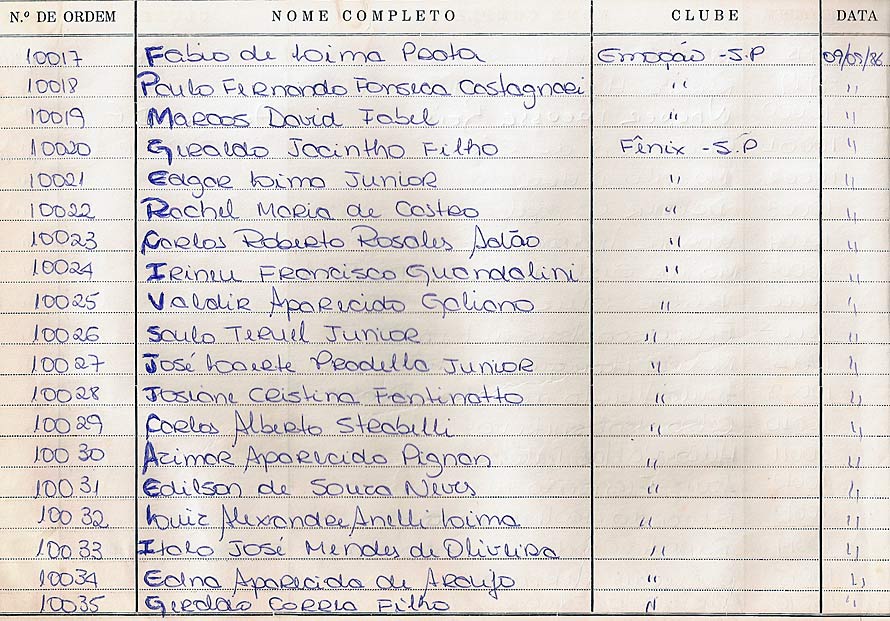 N.º DE ORDEM NOME COMPLETO CLUBE DATA
10017 Fabio de Lima Prota Emoção - S.P 09/03/86
10018 Paulo Fernando Fonseca Castagnari " "
10019 Marcos David Fabel " "
10020 Geraldo Jacintho Filho Fênix - S.P "
10021 Edgar Lima Junior " "
10022 Rachel Maria de Castro " "
10023 Carlos Roberto Rosales Adão " "
10024 Irineu Francisco Guandalini " "
10025 Valdir Aparecido Galiano " "
10026 Saulo Teruel Junior " "
10027 José Loarete Pradella Junior " "
10028 Josiane Cristina Fantinatto " "
10029 Carlos Alberto Strabelli " "
10030 Azimar Aparecido Pignan " "
10031 Edilson de Souza Neves " "
10032 Luiz Alexandre Anelli Lima " "
10033 Italo José Mendes de Oliveira " "
10034 Edna Aparecida de Araujo " "
10035 Geraldo Correa Filho " "